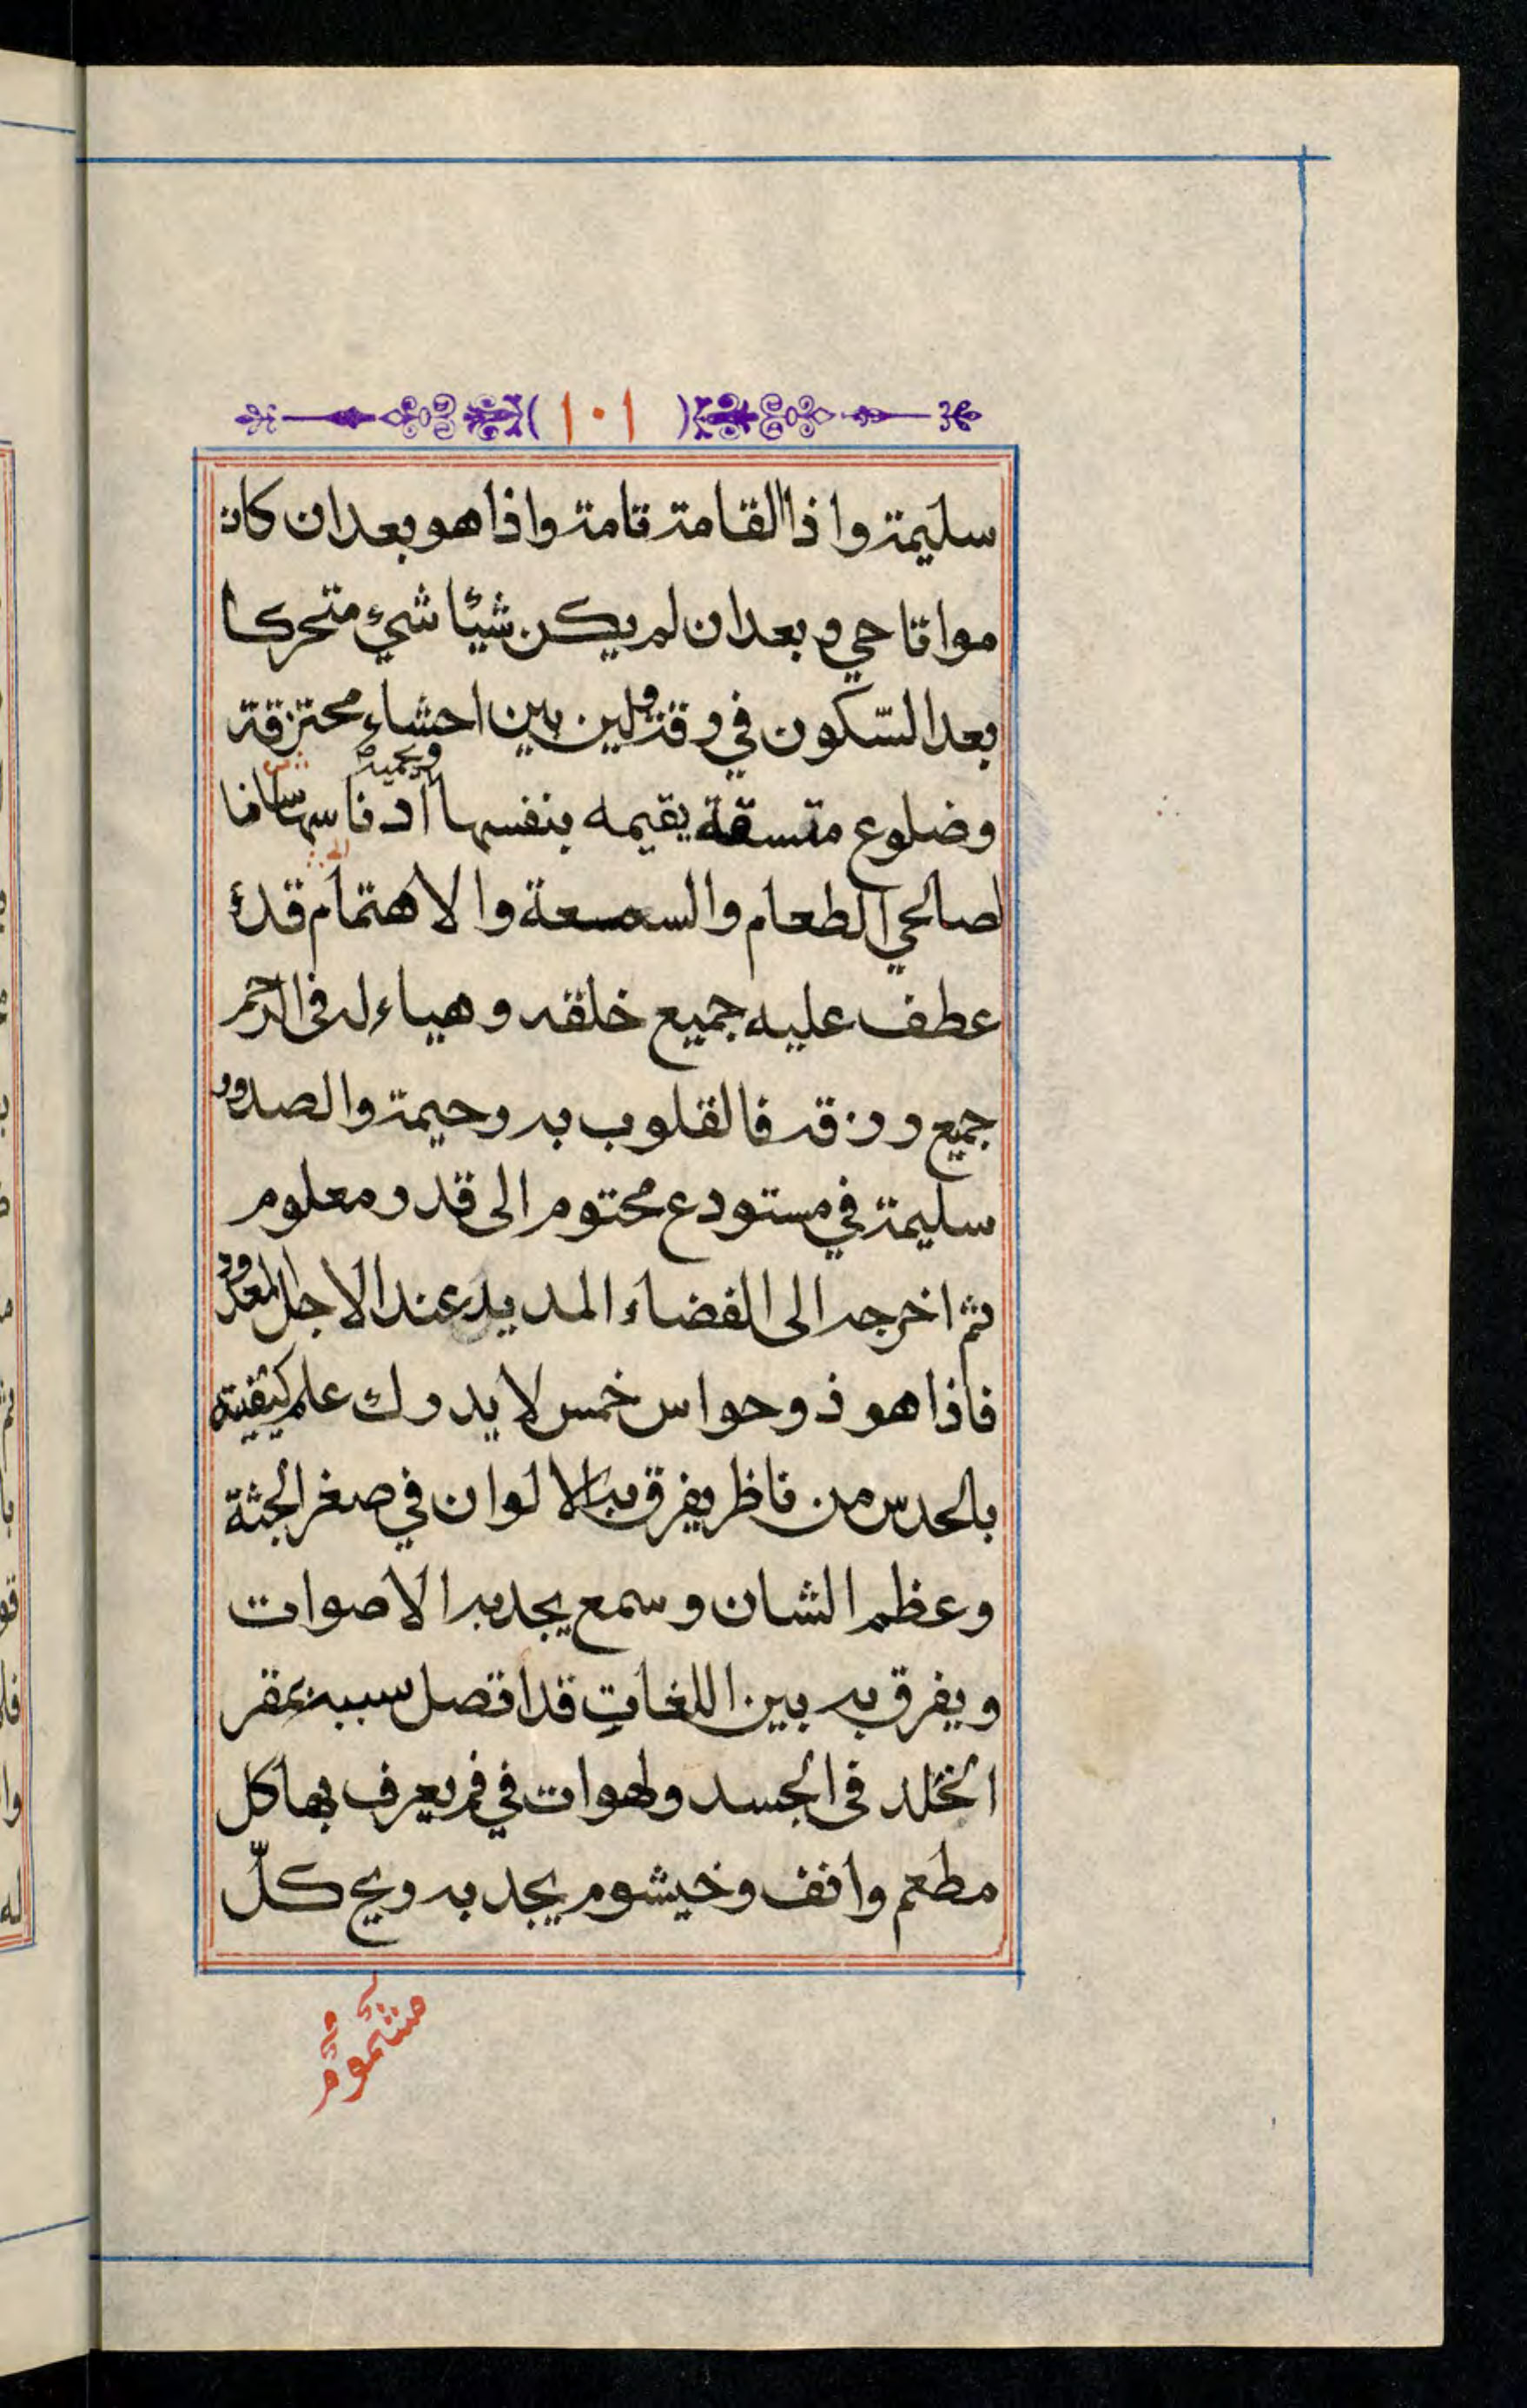 ١٠١
سليمة واذا القامة تامة واذا هو بعد ان كان
مواتا حي و بعد ان لم يكن شيئا شيء متحركا
بعد السّكون في رقة ولين بين احشاء محترقة
وضلوع متسقة يقيمه بنفسها
ويحميه
لصالحي الطعام والسمسعة والاهتمام قد
عطف عليه جميع خلقه وهياء له فى الرحم
جميع رزقه فالقلوب به رحيمة والصدور
سليمة في مستودع محتوم الى قدر معلوم
ثم اخرجه الى الفضاء المديد عند الاجل المعدود
فاذا هو ذو حواس خمس لا يدرك علم كيفيته
بالحدس من ناظر يفرق به الالوان في صغر الجثة
وعظم الشان وسمع يجد به الاصوات
ويفرق به بين اللغاتِ قد اتصل سببه بمقر
الخلد فى الجسد ولهوات في فم يعرف بها كل
مطعم وانف وخيشوم يجد به ريح كلّ
مشموم